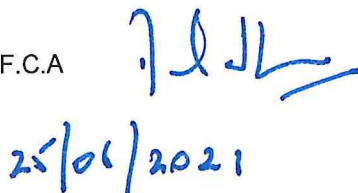 F.C.A
25/06/2021